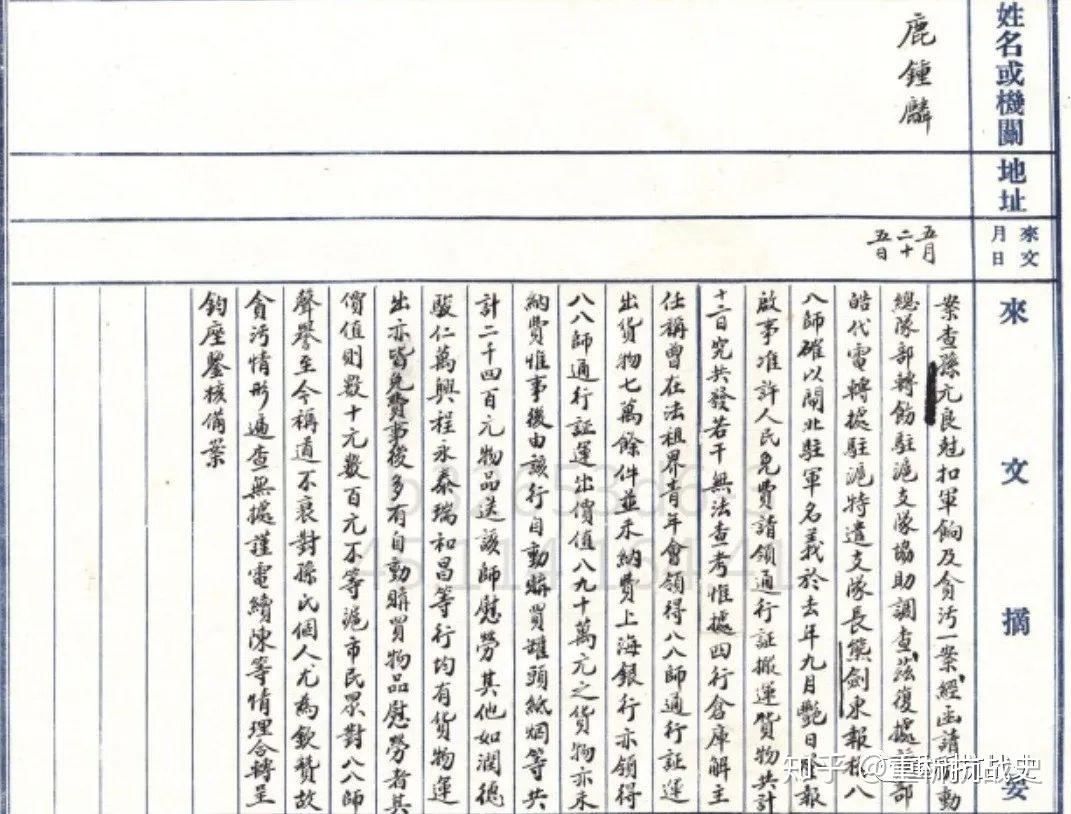 姓名或機關
鹿鍾麟
地址
來文月日
五月
二十
五日
來文摘要
案查孫元良尅扣軍餉及貪污一案經函請動
總隊部轉飭駐滬支隊協助調查茲復據部
皓代電轉據駐滬特遣支隊長熊劍東報稱八
八師確以閘北駐軍名義於去年九月艷日報
啟事准許人民免費請領通行証搬運貨物共計
十二日究共發若干無法查考惟據四行倉庫解主
任稱曾在法租界青年會領得八八師通行証運
出貨物七萬餘件並未納費上海銀行亦領得
八八師通行証運出價值八九十萬元之貨物亦未
納費惟事後由該行自動購買罐頭紙烟等共
計二千四百元物品送該師慰勞其他如潤德
駿仁萬興程永泰瑞和昌等行均有貨物運
出亦皆免費事後多有自動購買物品慰勞者其
價值則數十元數百元不等滬市民眾對八八師
聲譽至今稱道不衰對孫氏個人尤為欽贊故
貪污情形遍查無據謹電續陳等情理合轉呈
鈞座鑒核備案
知乎 @重抗战史